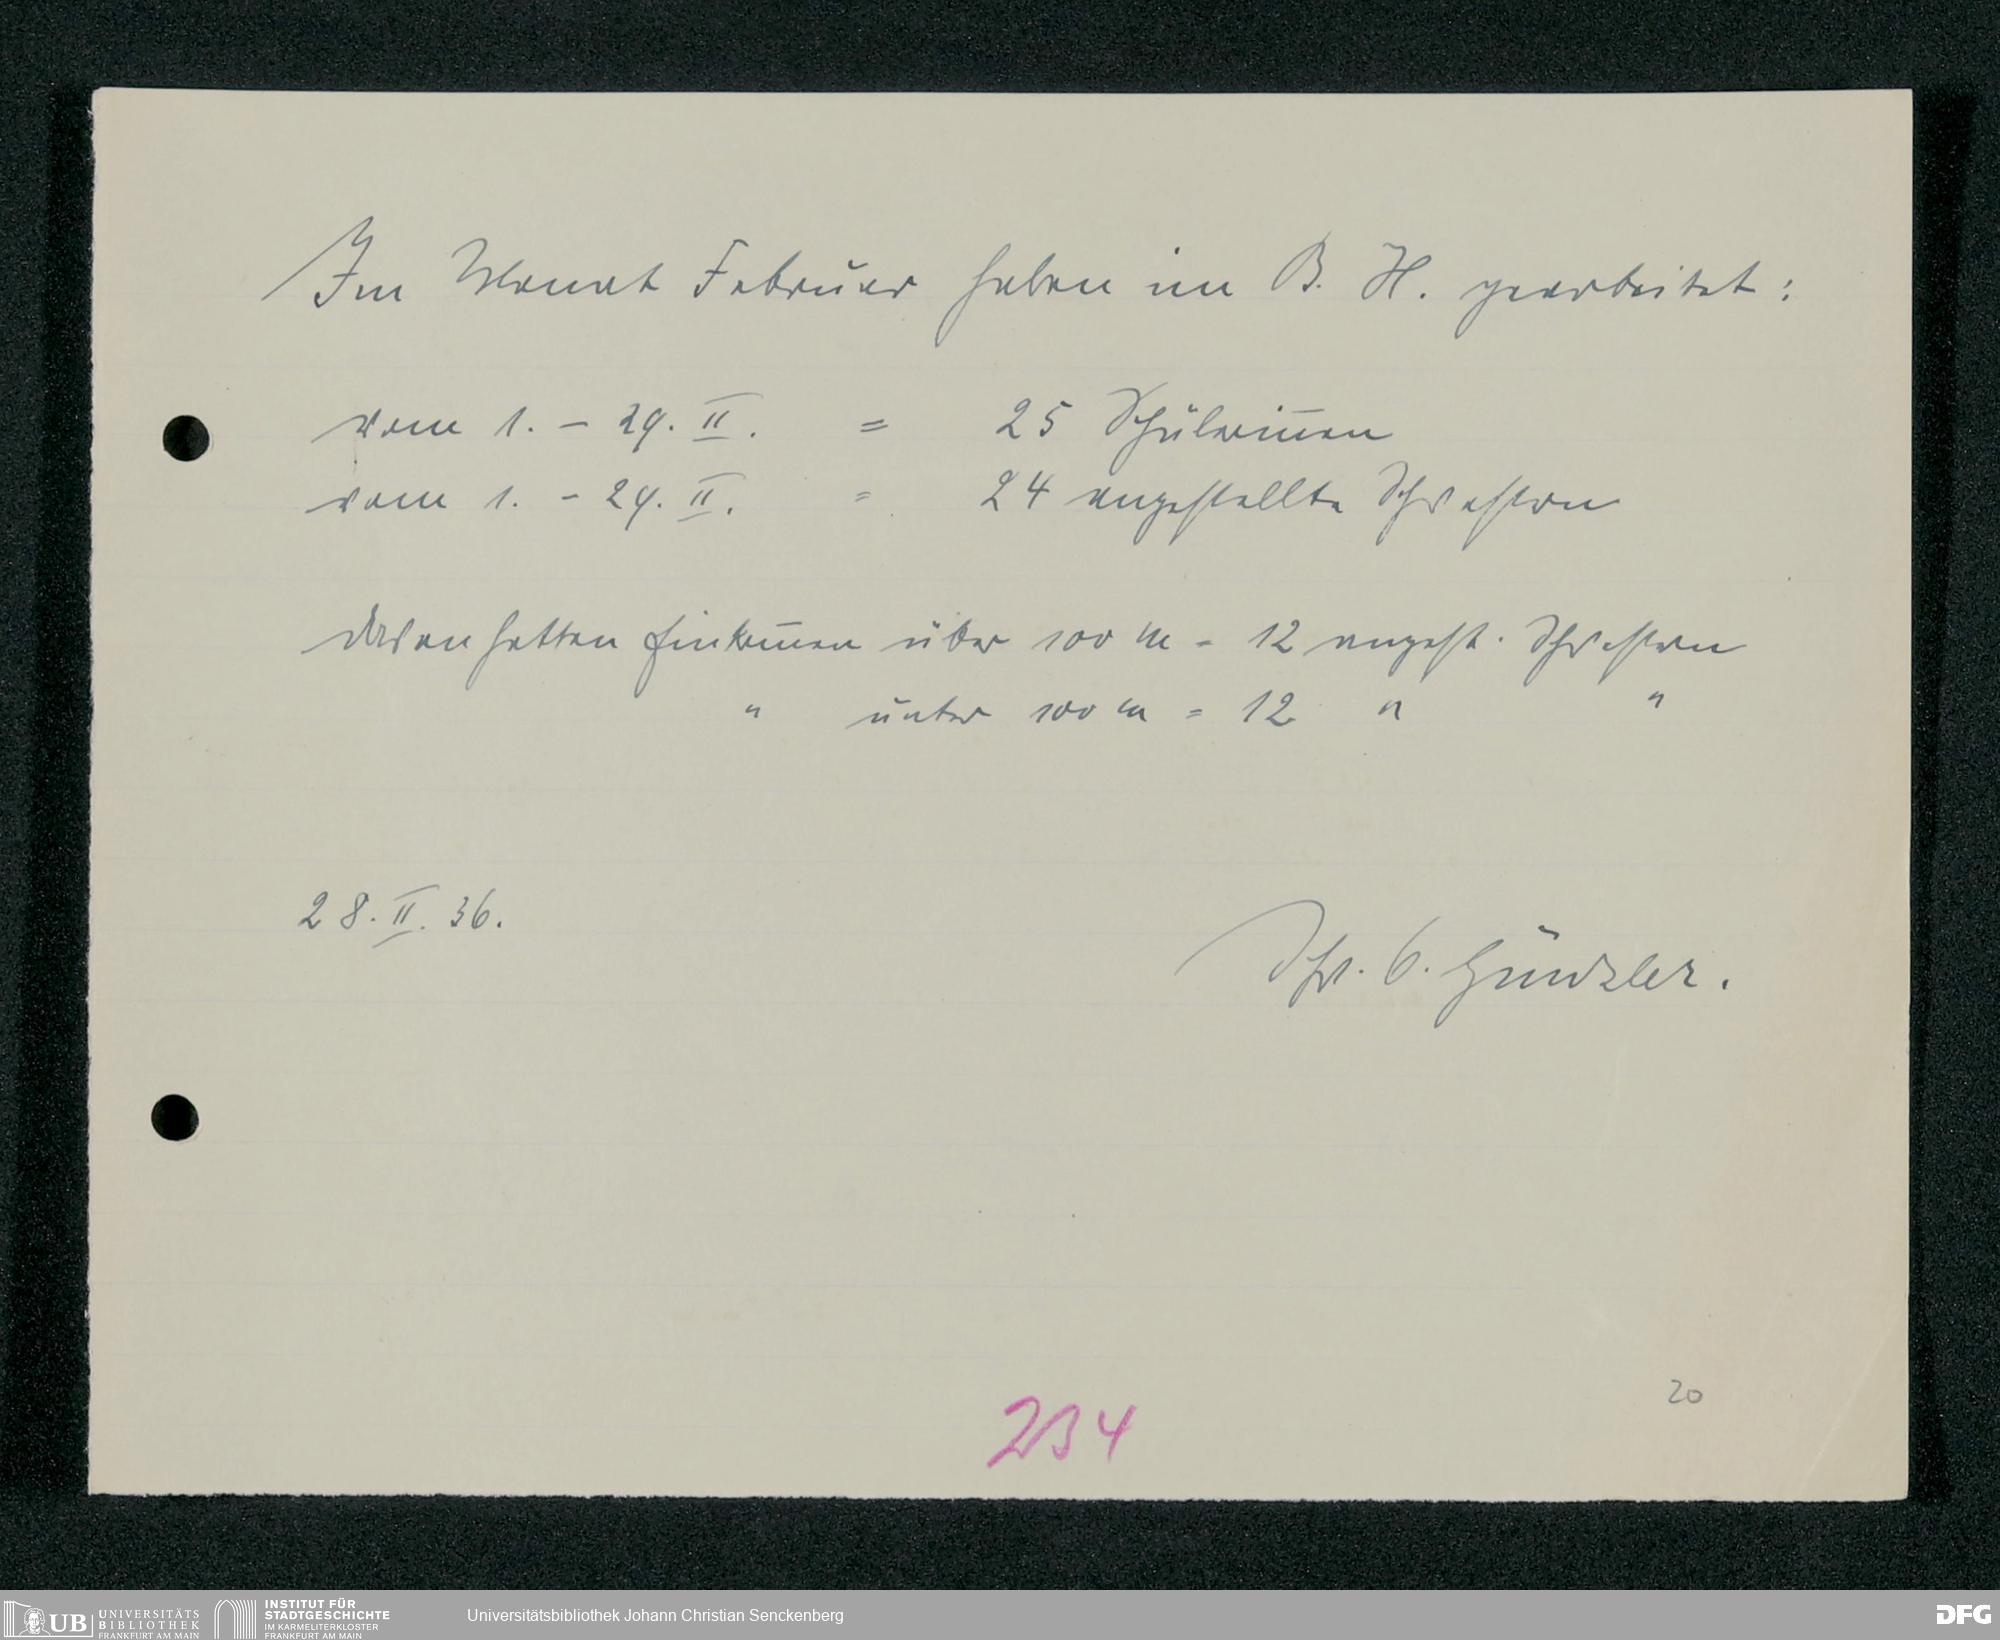 Im Monat Februar haben im B. H. gearbeitet:
vom 1. - 29. II. = 25 Schülerinnen
vom 1. - 29. II. = 24 angestellte Schwestern
davon hatten Einkommen über 100 M = 12 angest. Schwestern
" unter 100 M = 12 " "
28. II. 36.
Schw. E. Gündzler.
234
20
UB UNIVERSITÄTS BIBLIOTHEK FRANKFURT AM MAIN
INSTITUT FÜR STADTGESCHICHTE IM KARMELITERKLOSTER FRANKFURT AM MAIN
Universitätsbibliothek Johann Christian Senckenberg
DFG